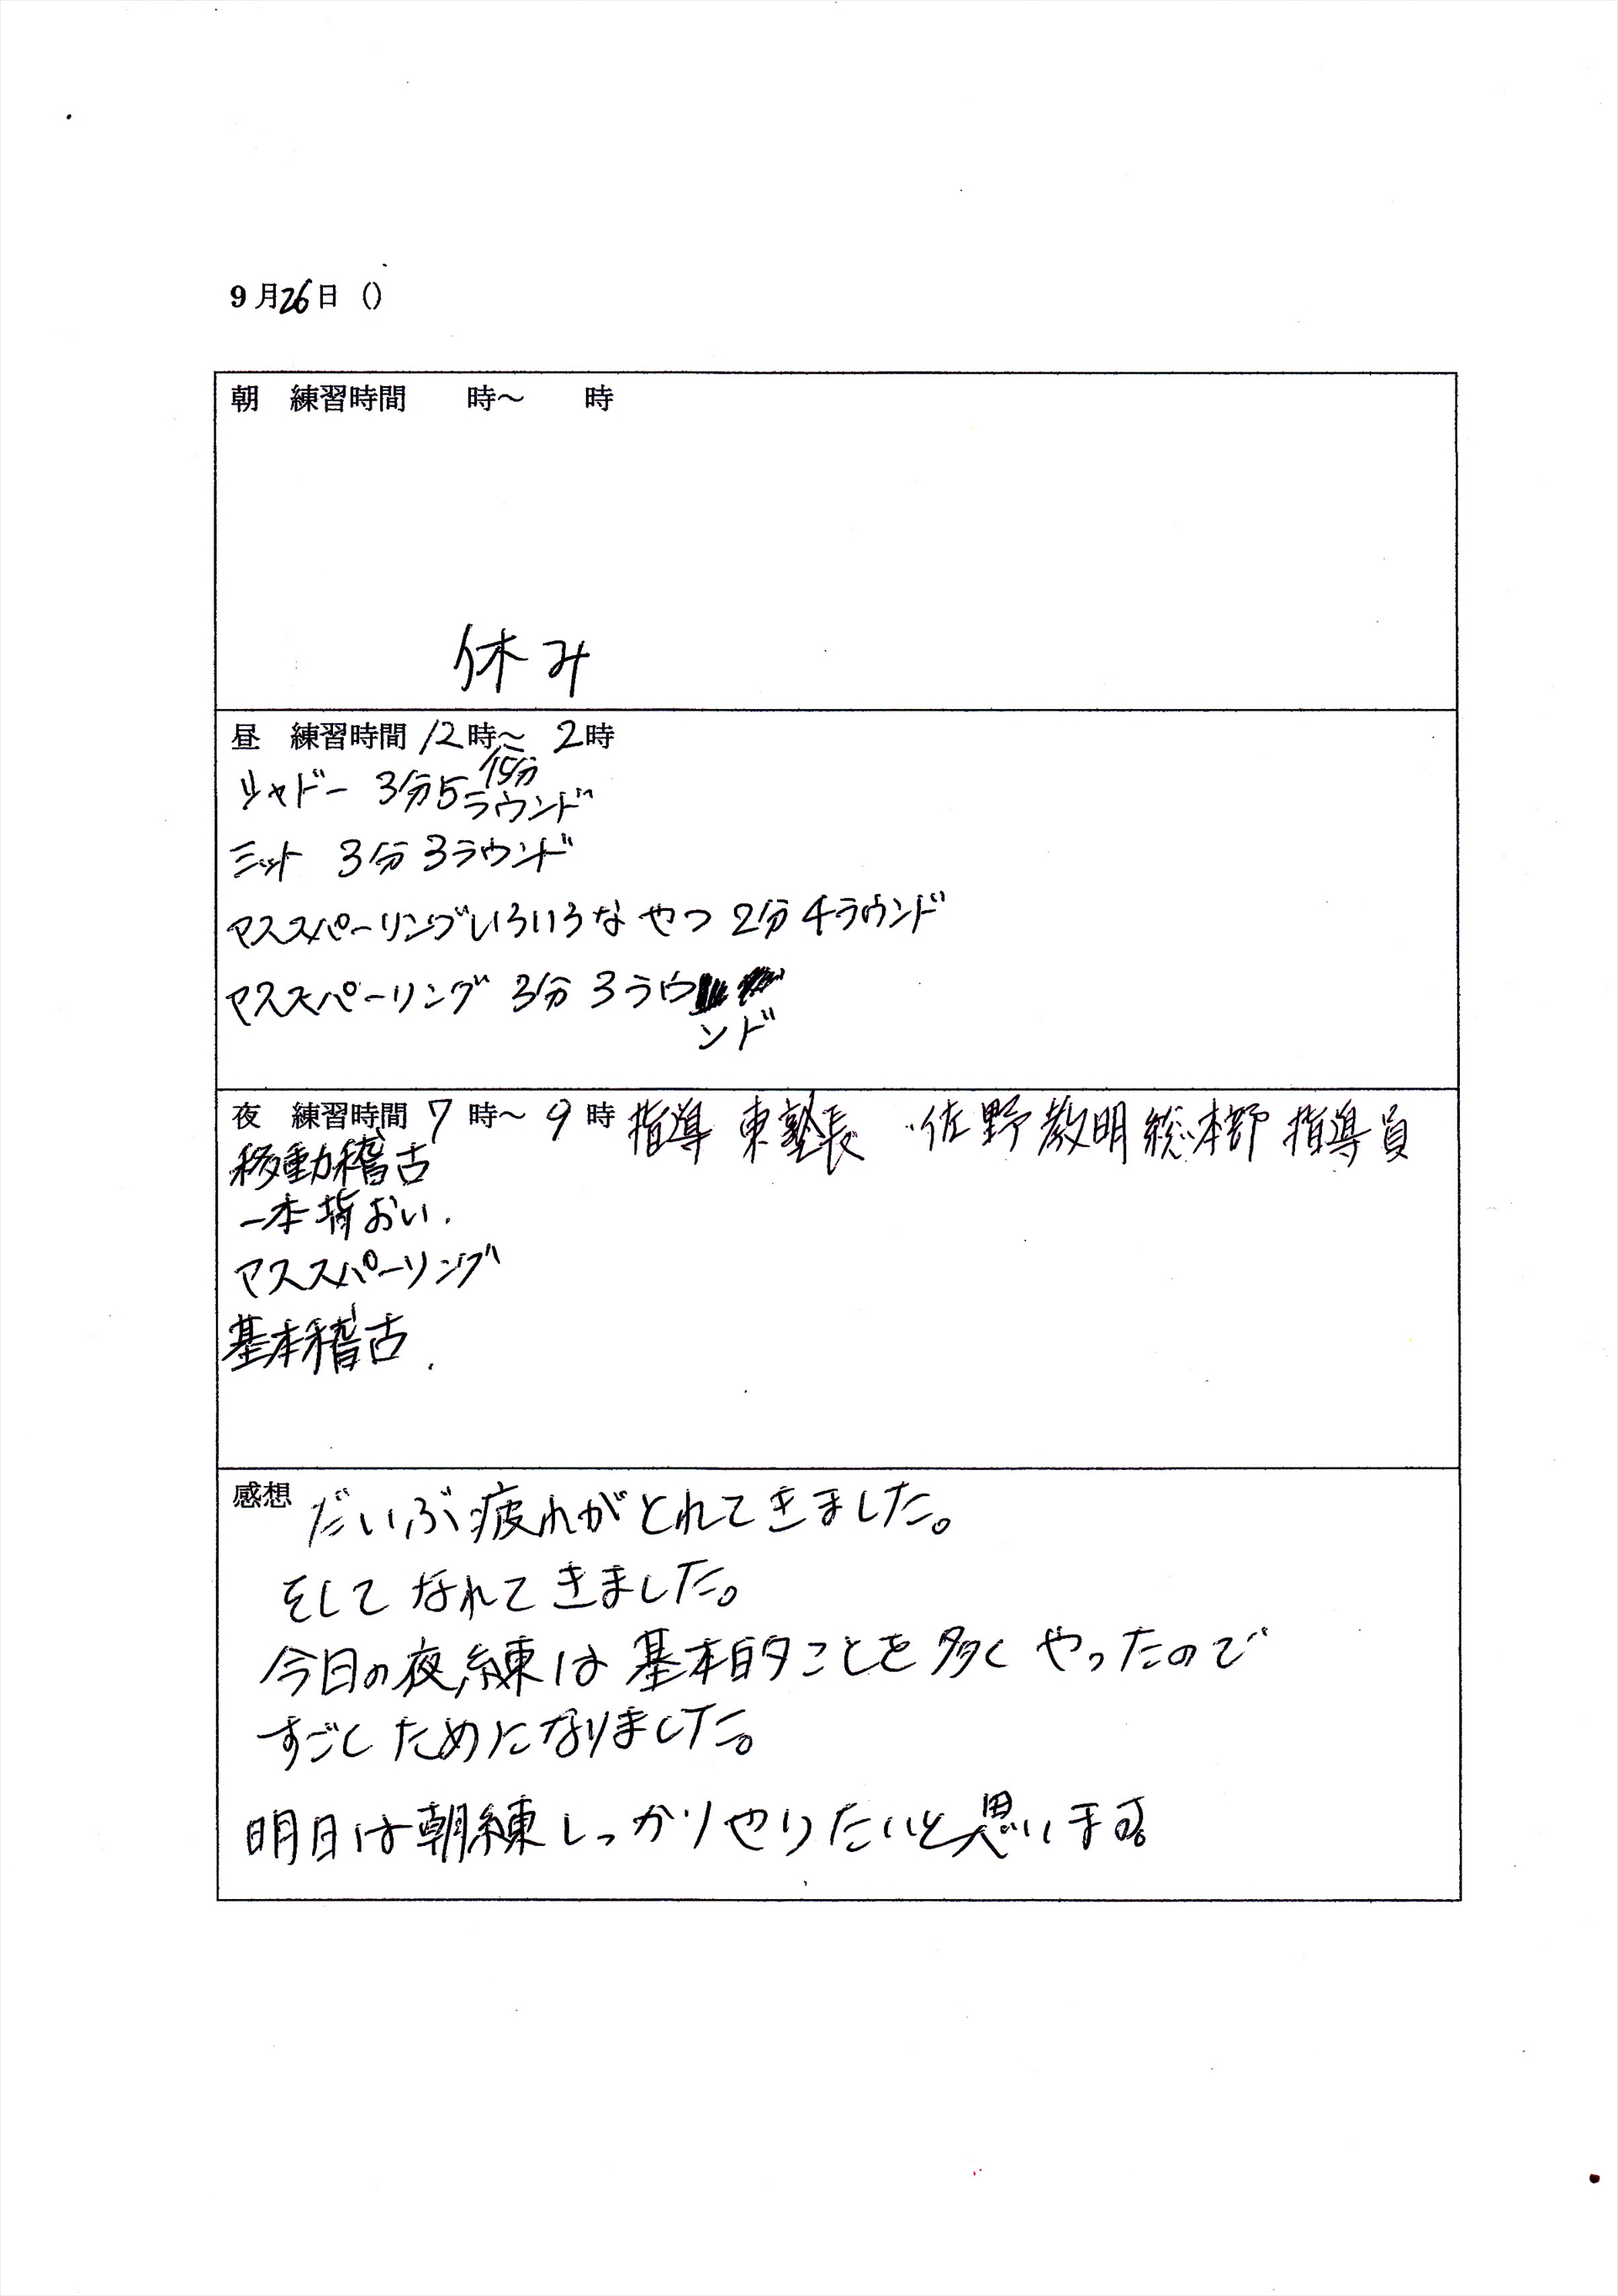 9月26日 ()
朝 練習時間 時～ 時
休み
昼 練習時間 12時～ 2時
15分
シャドー 3分5ラウンド
ミット 3分3ラウンド
マススパーリングいろいろなやつ 2分4ラウンド
マススパーリング 3分3ラウ
ンド
夜 練習時間 7時～ 9時 指導 東塾長 佐野教明総本部指導員
移動稽古
一本指おい.
マススパーリング
基本稽古.
感想 だいぶ疲れがとれてきました。
そしてなれてきました。
今日の夜練は基本的ことを多くやったので
すごくためになりました。
明日は朝練しっかりやりたいと思います。